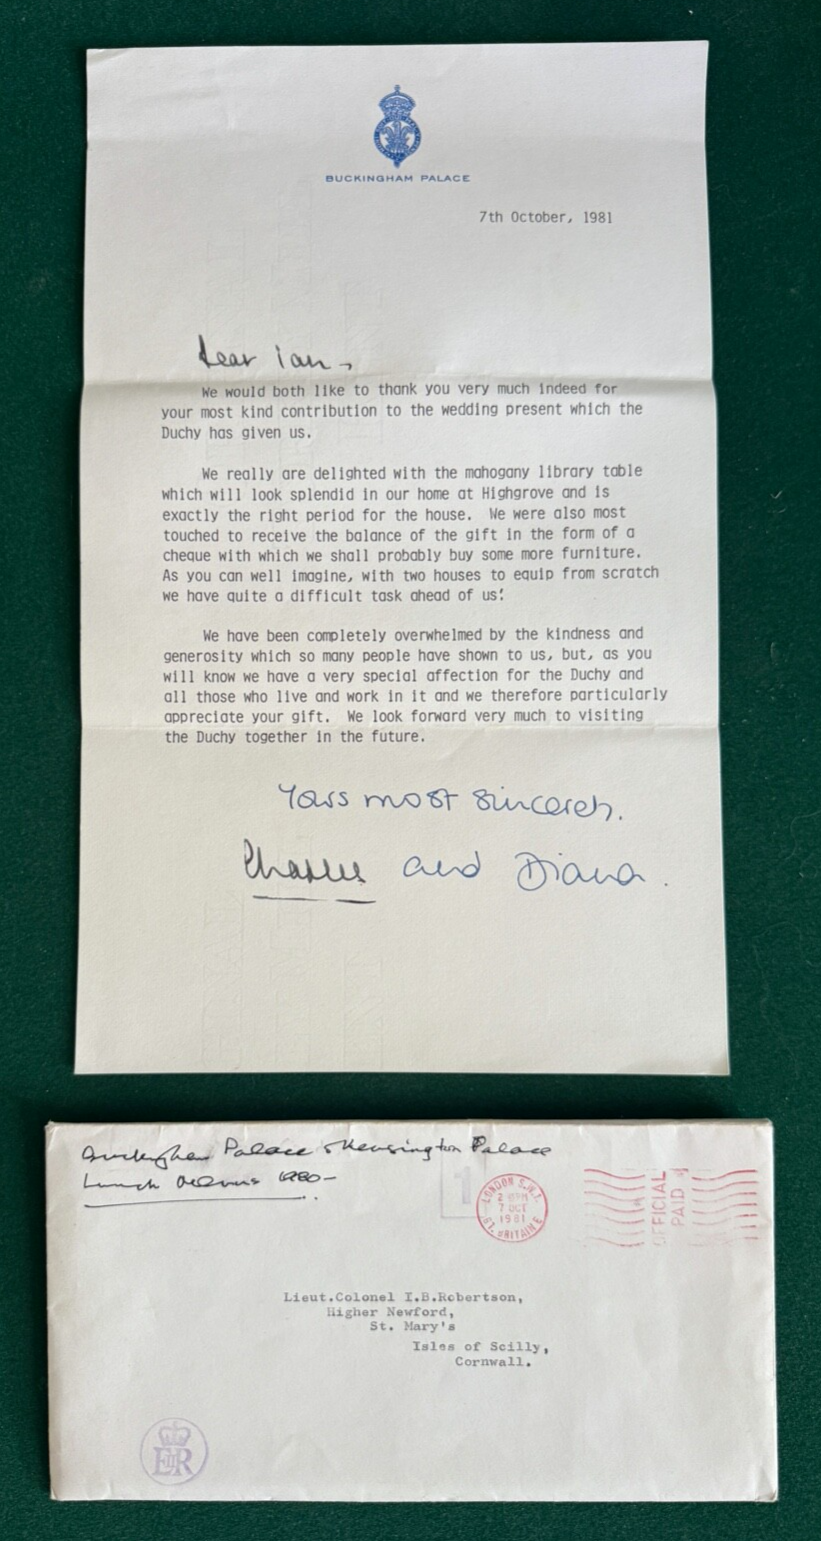 BUCKINGHAM PALACE
7th October, 1981
Dear Ian,
We would both like to thank you very much indeed for
your most kind contribution to the wedding present which the
Duchy has given us.
We really are delighted with the mahogany library table
which will look splendid in our home at Highgrove and is
exactly the right period for the house. We were also most
touched to receive the balance of the gift in the form of a
cheque with which we shall probably buy some more furniture.
As you can well imagine, with two houses to equip from scratch
we have quite a difficult task ahead of us!
We have been completely overwhelmed by the kindness and
generosity which so many people have shown to us, but, as you
will know we have a very special affection for the Duchy and
all those who live and work in it and we therefore particularly
appreciate your gift. We look forward very much to visiting
the Duchy together in the future.
Yours most sincerely.
Charles and Diana.
Buckingham Palace & Kensington Palace
Lunch
1
LONDON S.W.1.
7 OCT
1981
GT. BRITAIN
OFFICIAL
PAID
Lieut.Colonel I.B.Robertson,
Higher Newford,
St. Mary's
Isles of Scilly,
Cornwall.
EIIR